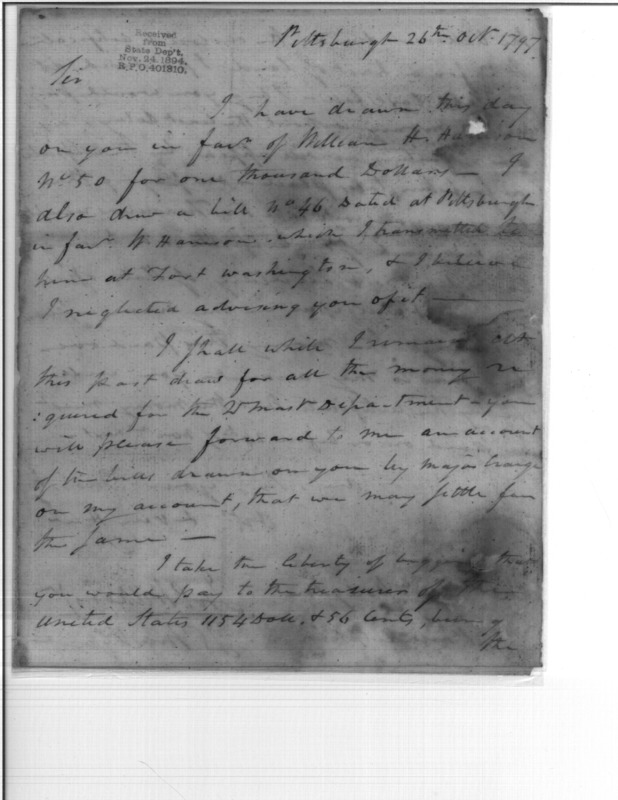 Received
from
State Dep't.
Nov. 24. 1894,
R.P.O. 401810.
Pittsburgh 26th Octr 1797.
Sir
I have drawn this day
on you in favr of William H. Harrison
No 50 for one thousand Dollars — I
also drew a bill No 46 Dated at Pittsburgh
in favr W. Harrison, which I transmitted to
him at Fort washington, & I believe
I neglected advising you of it —
I shall while I remain at
this post draw for all the money re
:quired for the Qr Mast Department — you
will please forward to me an account
of the bills drawn on you by major Craige
on my account, that we may settle for
the Same —
I take the liberty of begging that
you would pay to the treasurer of the
United States 1154 Doll. & 56 Cents, being
the